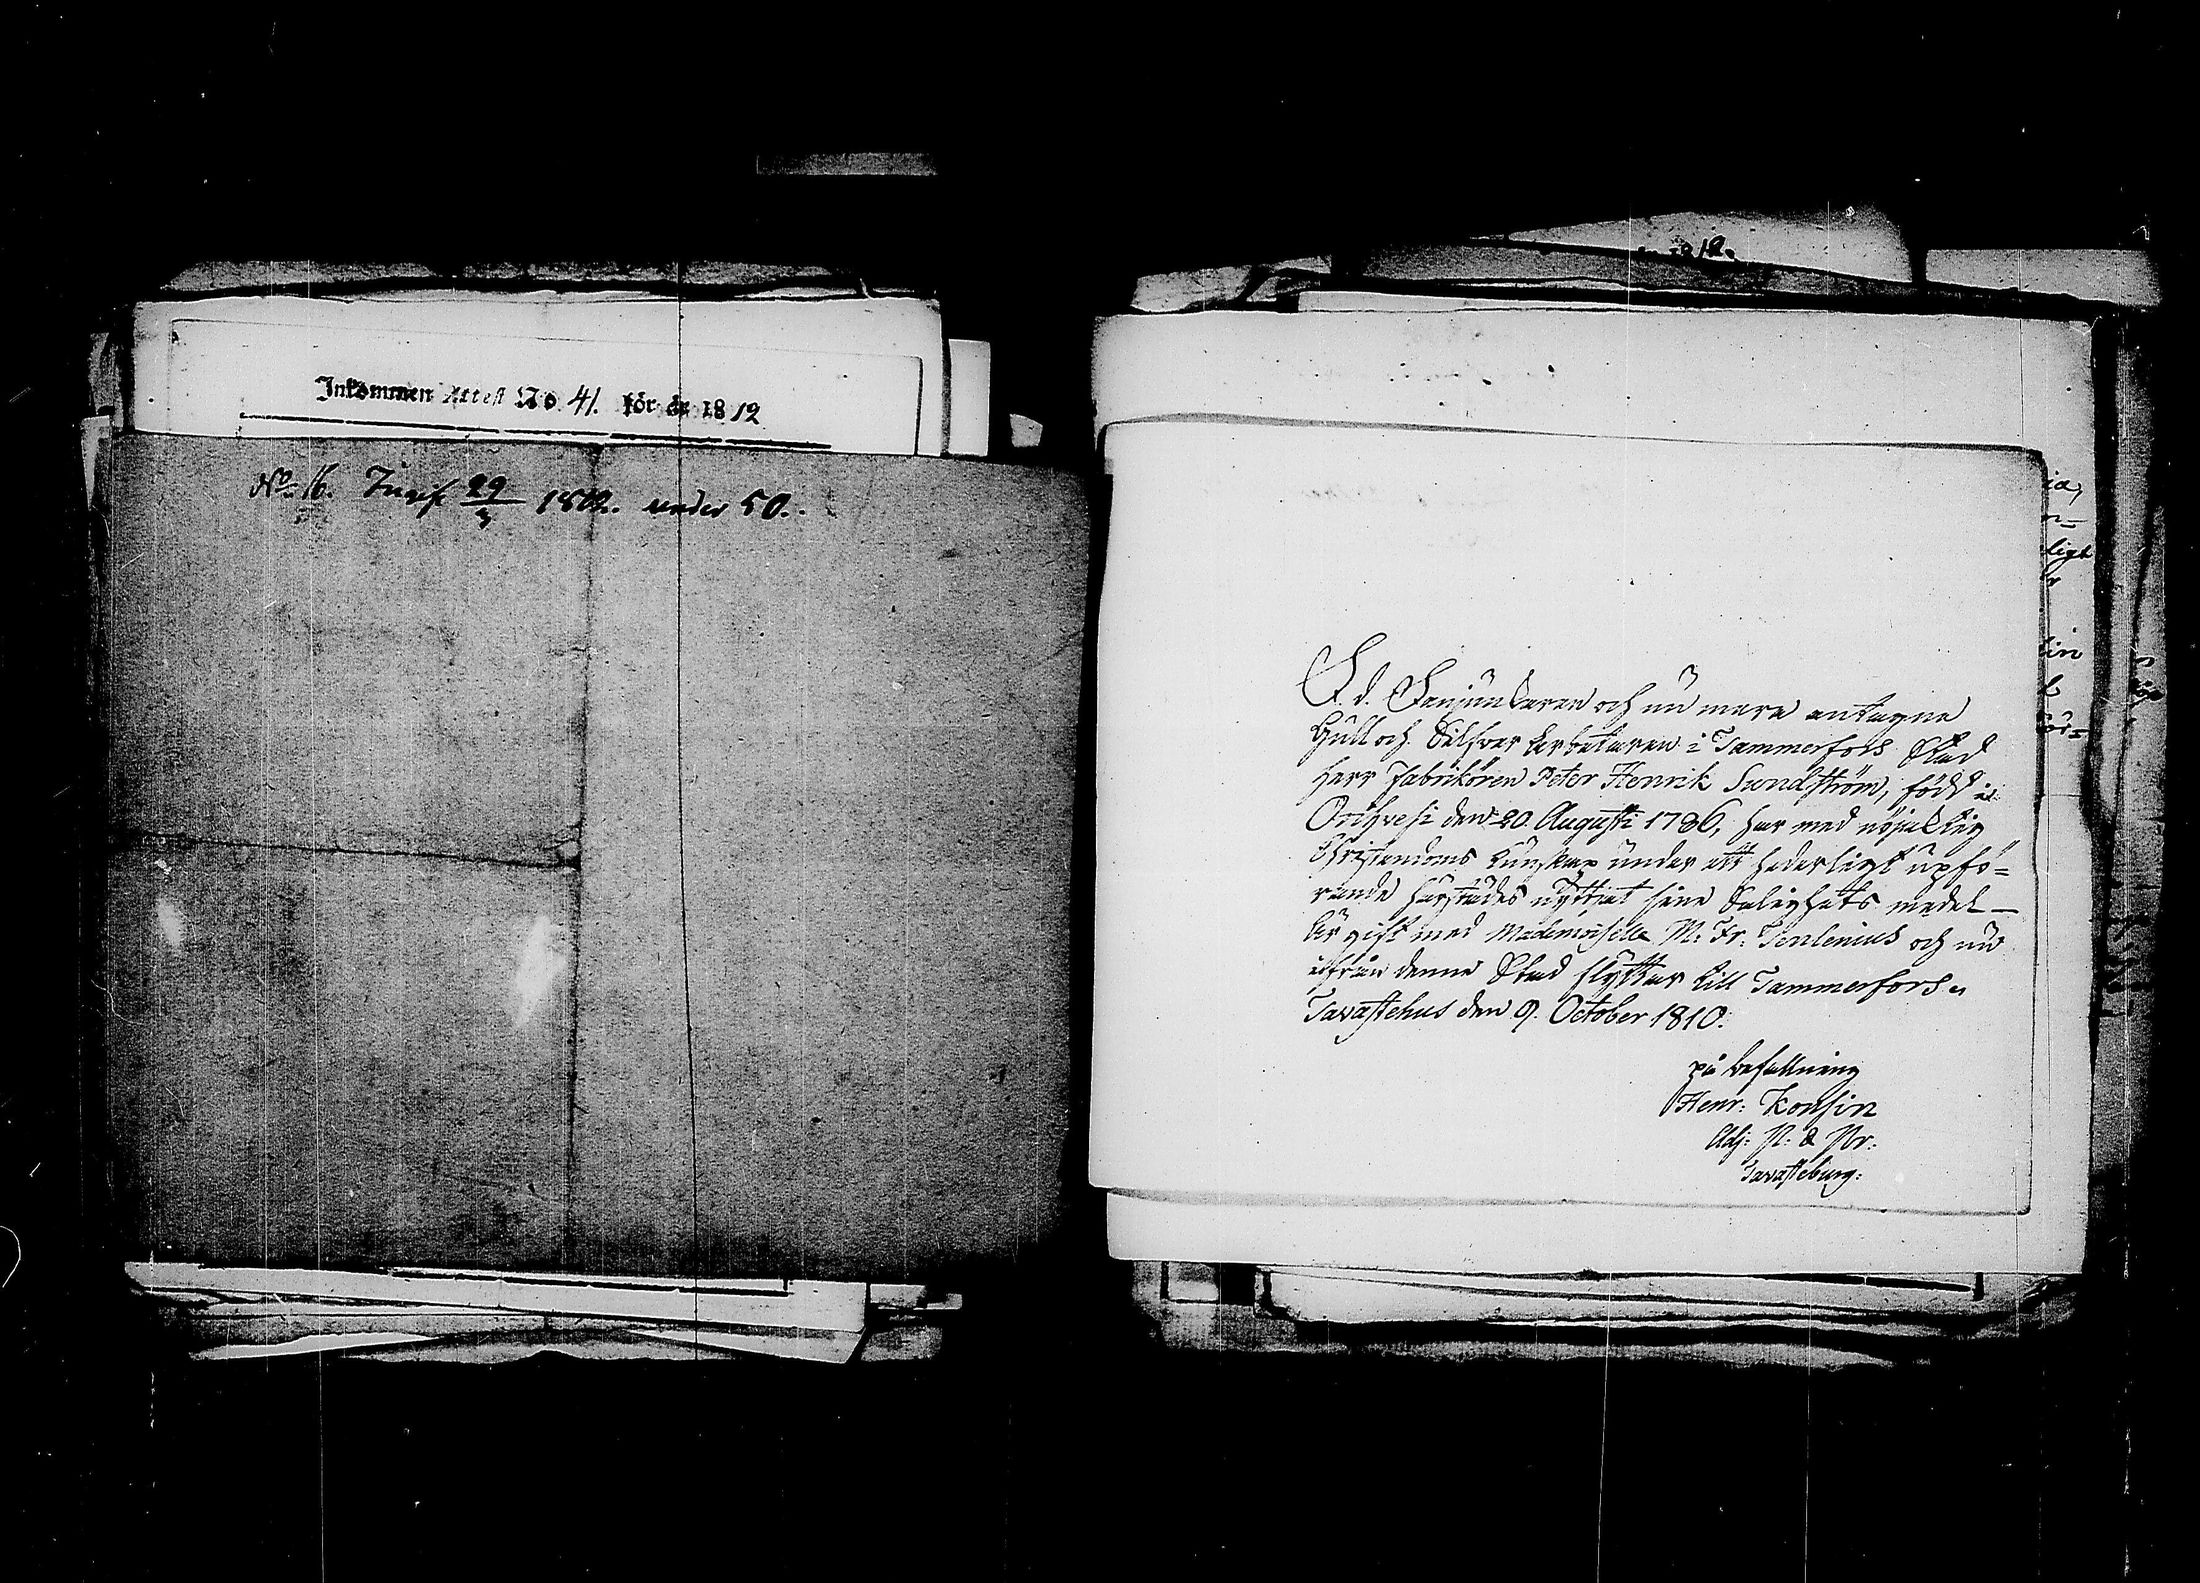 Inkommen Attest No 41. för år 1812
No 16. Inreg 29/3 1812. under 50.
1812.
F. d. Fanjunkaren och nu mera antagne
Gull och Silfver Arbetaren i Tammerfors Stad
Herr Fabrikören Peter Henrik Sundström, född i
Orihvesi den 20 Augusti 1786, har med nöjaktig
Christendoms Kunskap under ett hederligt upfö=
rande härstädes nyttjat sine Salighets medel —
Är gift med Mademoiselle M: Fr: Tenlenius och nu
ifrån denne Stad flyttar till Tammerfors.
Tavastehus den 9. October 1810.
på befallning
Henr: Konsin
Adj: P: & Pr:
Tavasteburg:
ligt